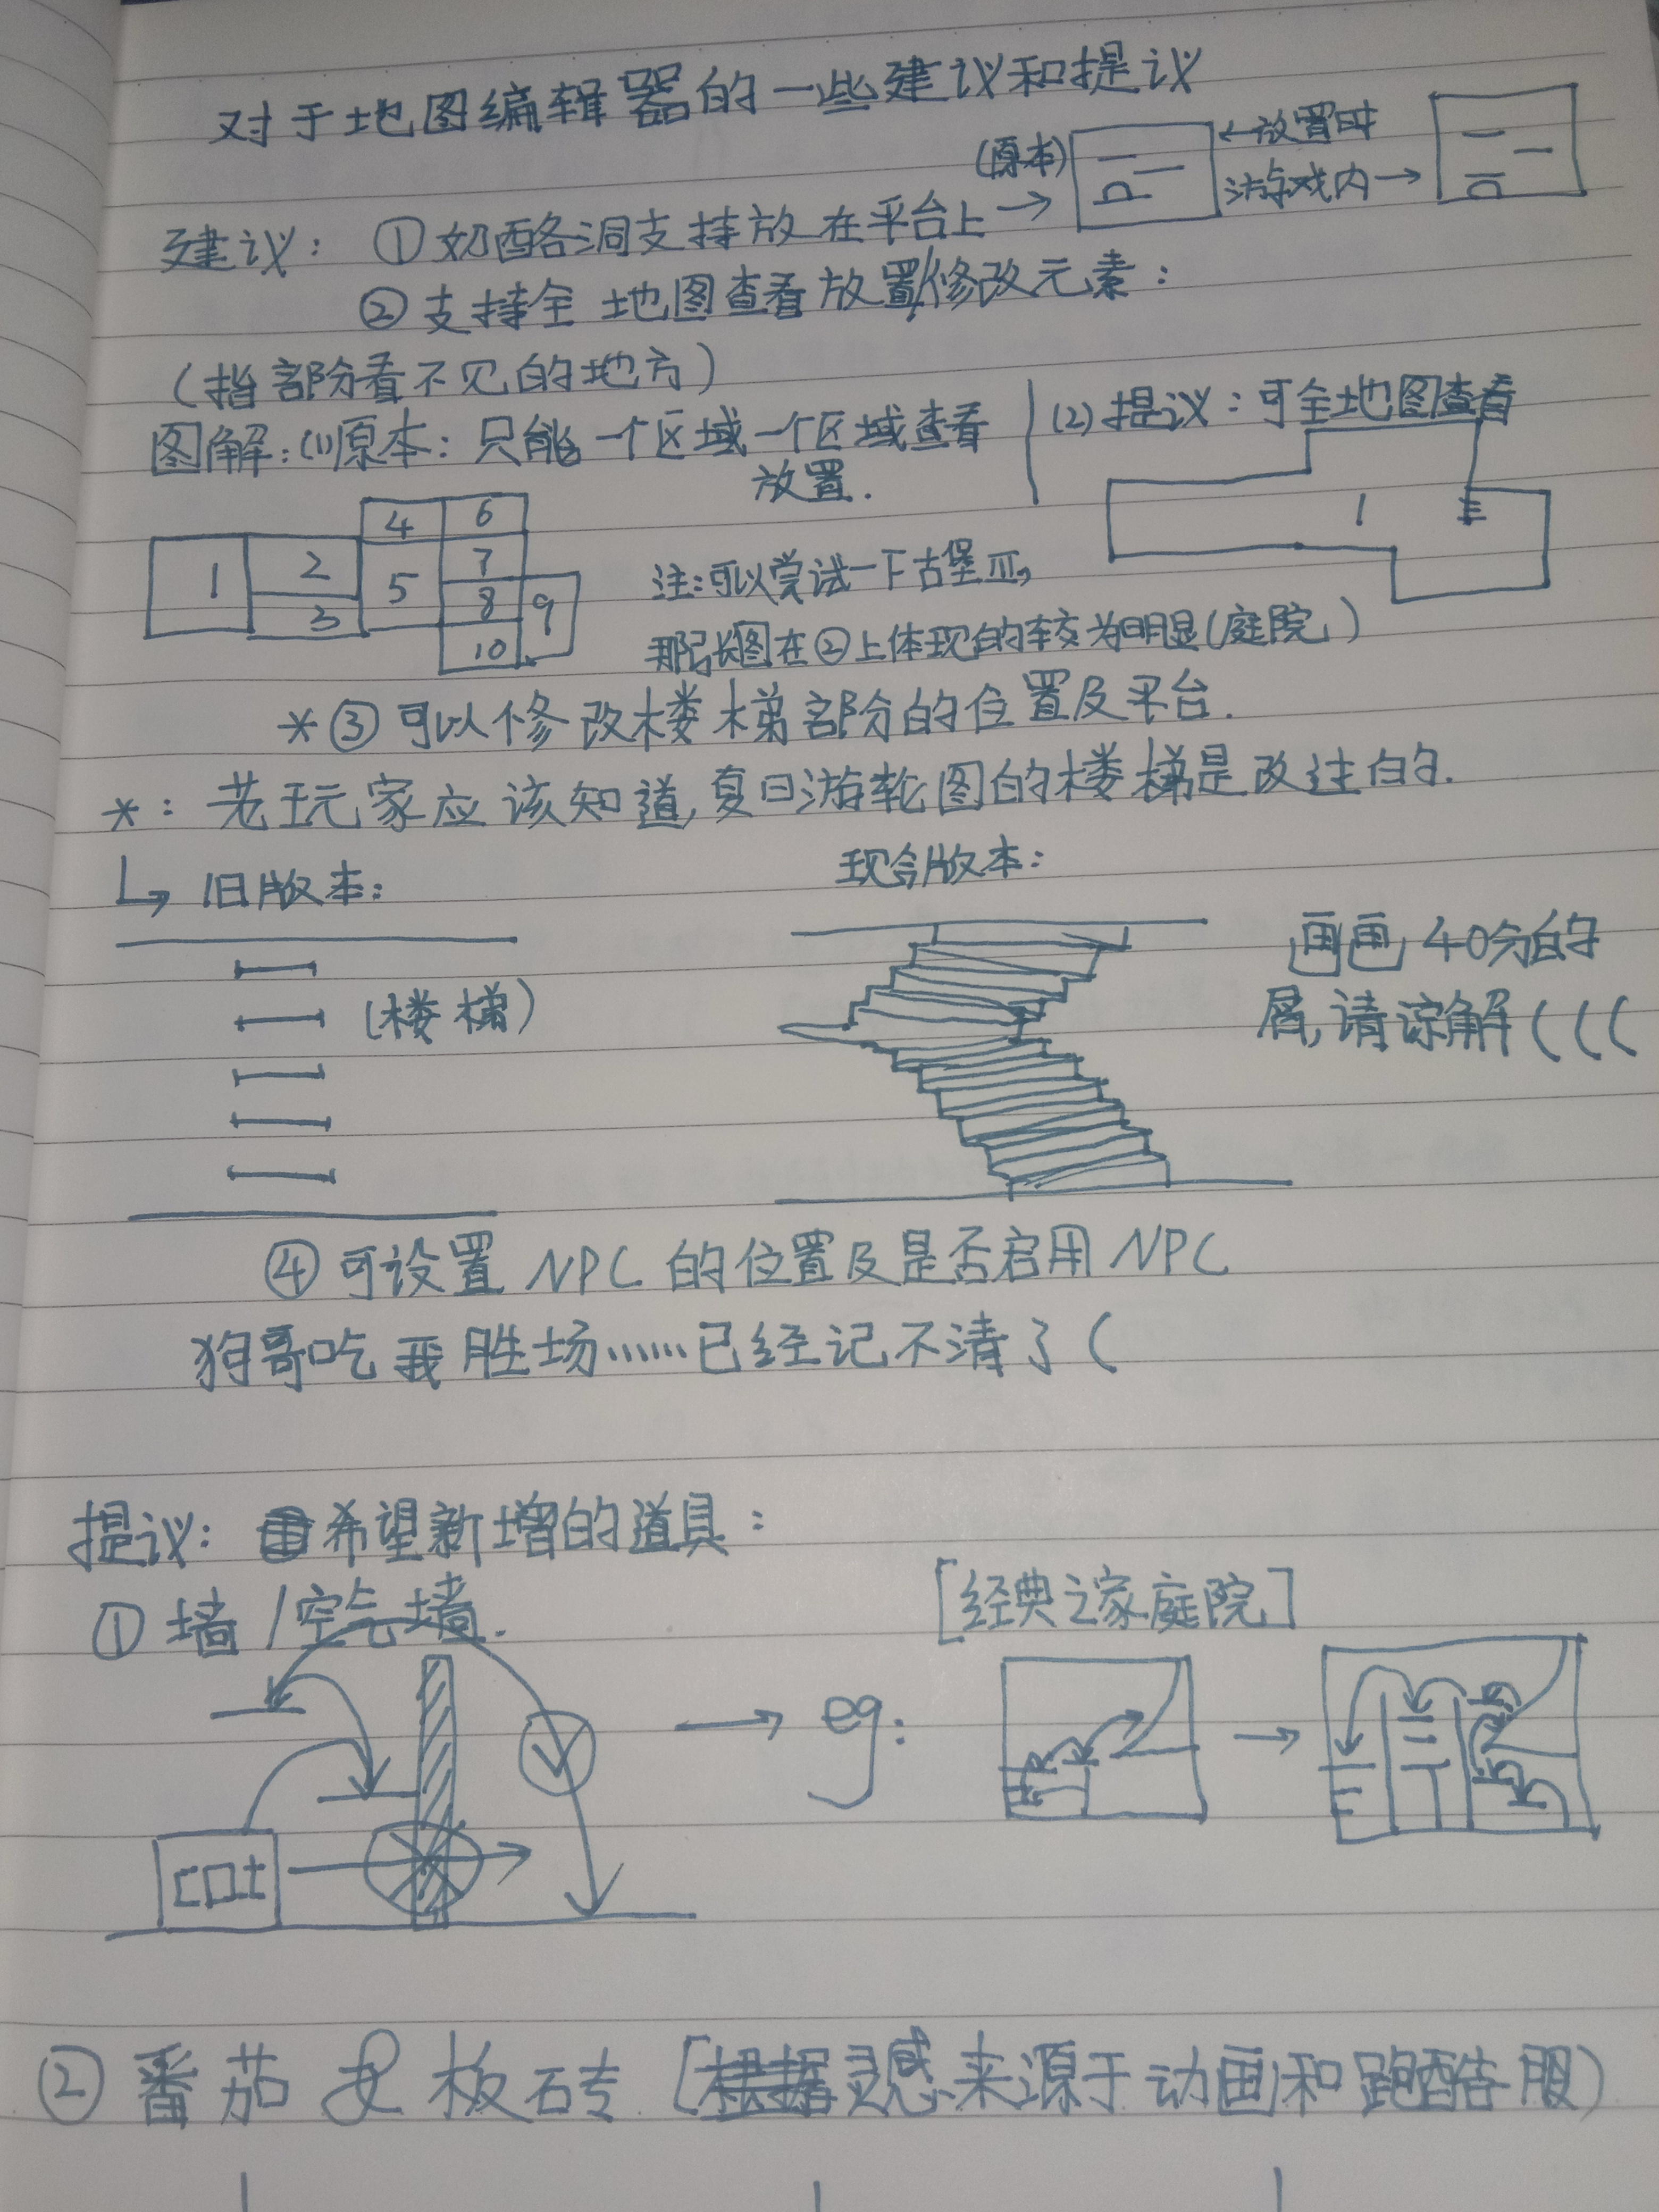 对于地图编辑器的一些建议和提议
建议：①奶酪洞支持放在平台上→
(原本)
←放置时
游戏内→
②支持全地图查看放置/修改元素：
（指部分看不见的地方）
图解：(1)原本：只能一个区域一个区域查看
放置.
(2)提议：可全地图查看
1 2 3 4 5 6 7 8 9 10
1
注：可以尝试一下古堡Ⅲ,
那张图在②上体现的较为明显(庭院)
*③可以修改楼梯部分的位置及平台.
*：老玩家应该知道,夏日游轮图的楼梯是改过的.
↳旧版本：
现今版本：
(楼梯)
画画40分的
屑,请谅解(((
④可设置NPC的位置及是否启用NPC
狗哥吃我胜场……已经记不清了(
提议：希望新增的道具：
①墙/空气墙.
[经典之家庭院]
cat
→ eg:
②番茄 板砖[灵感来源于动画和跑酷服)